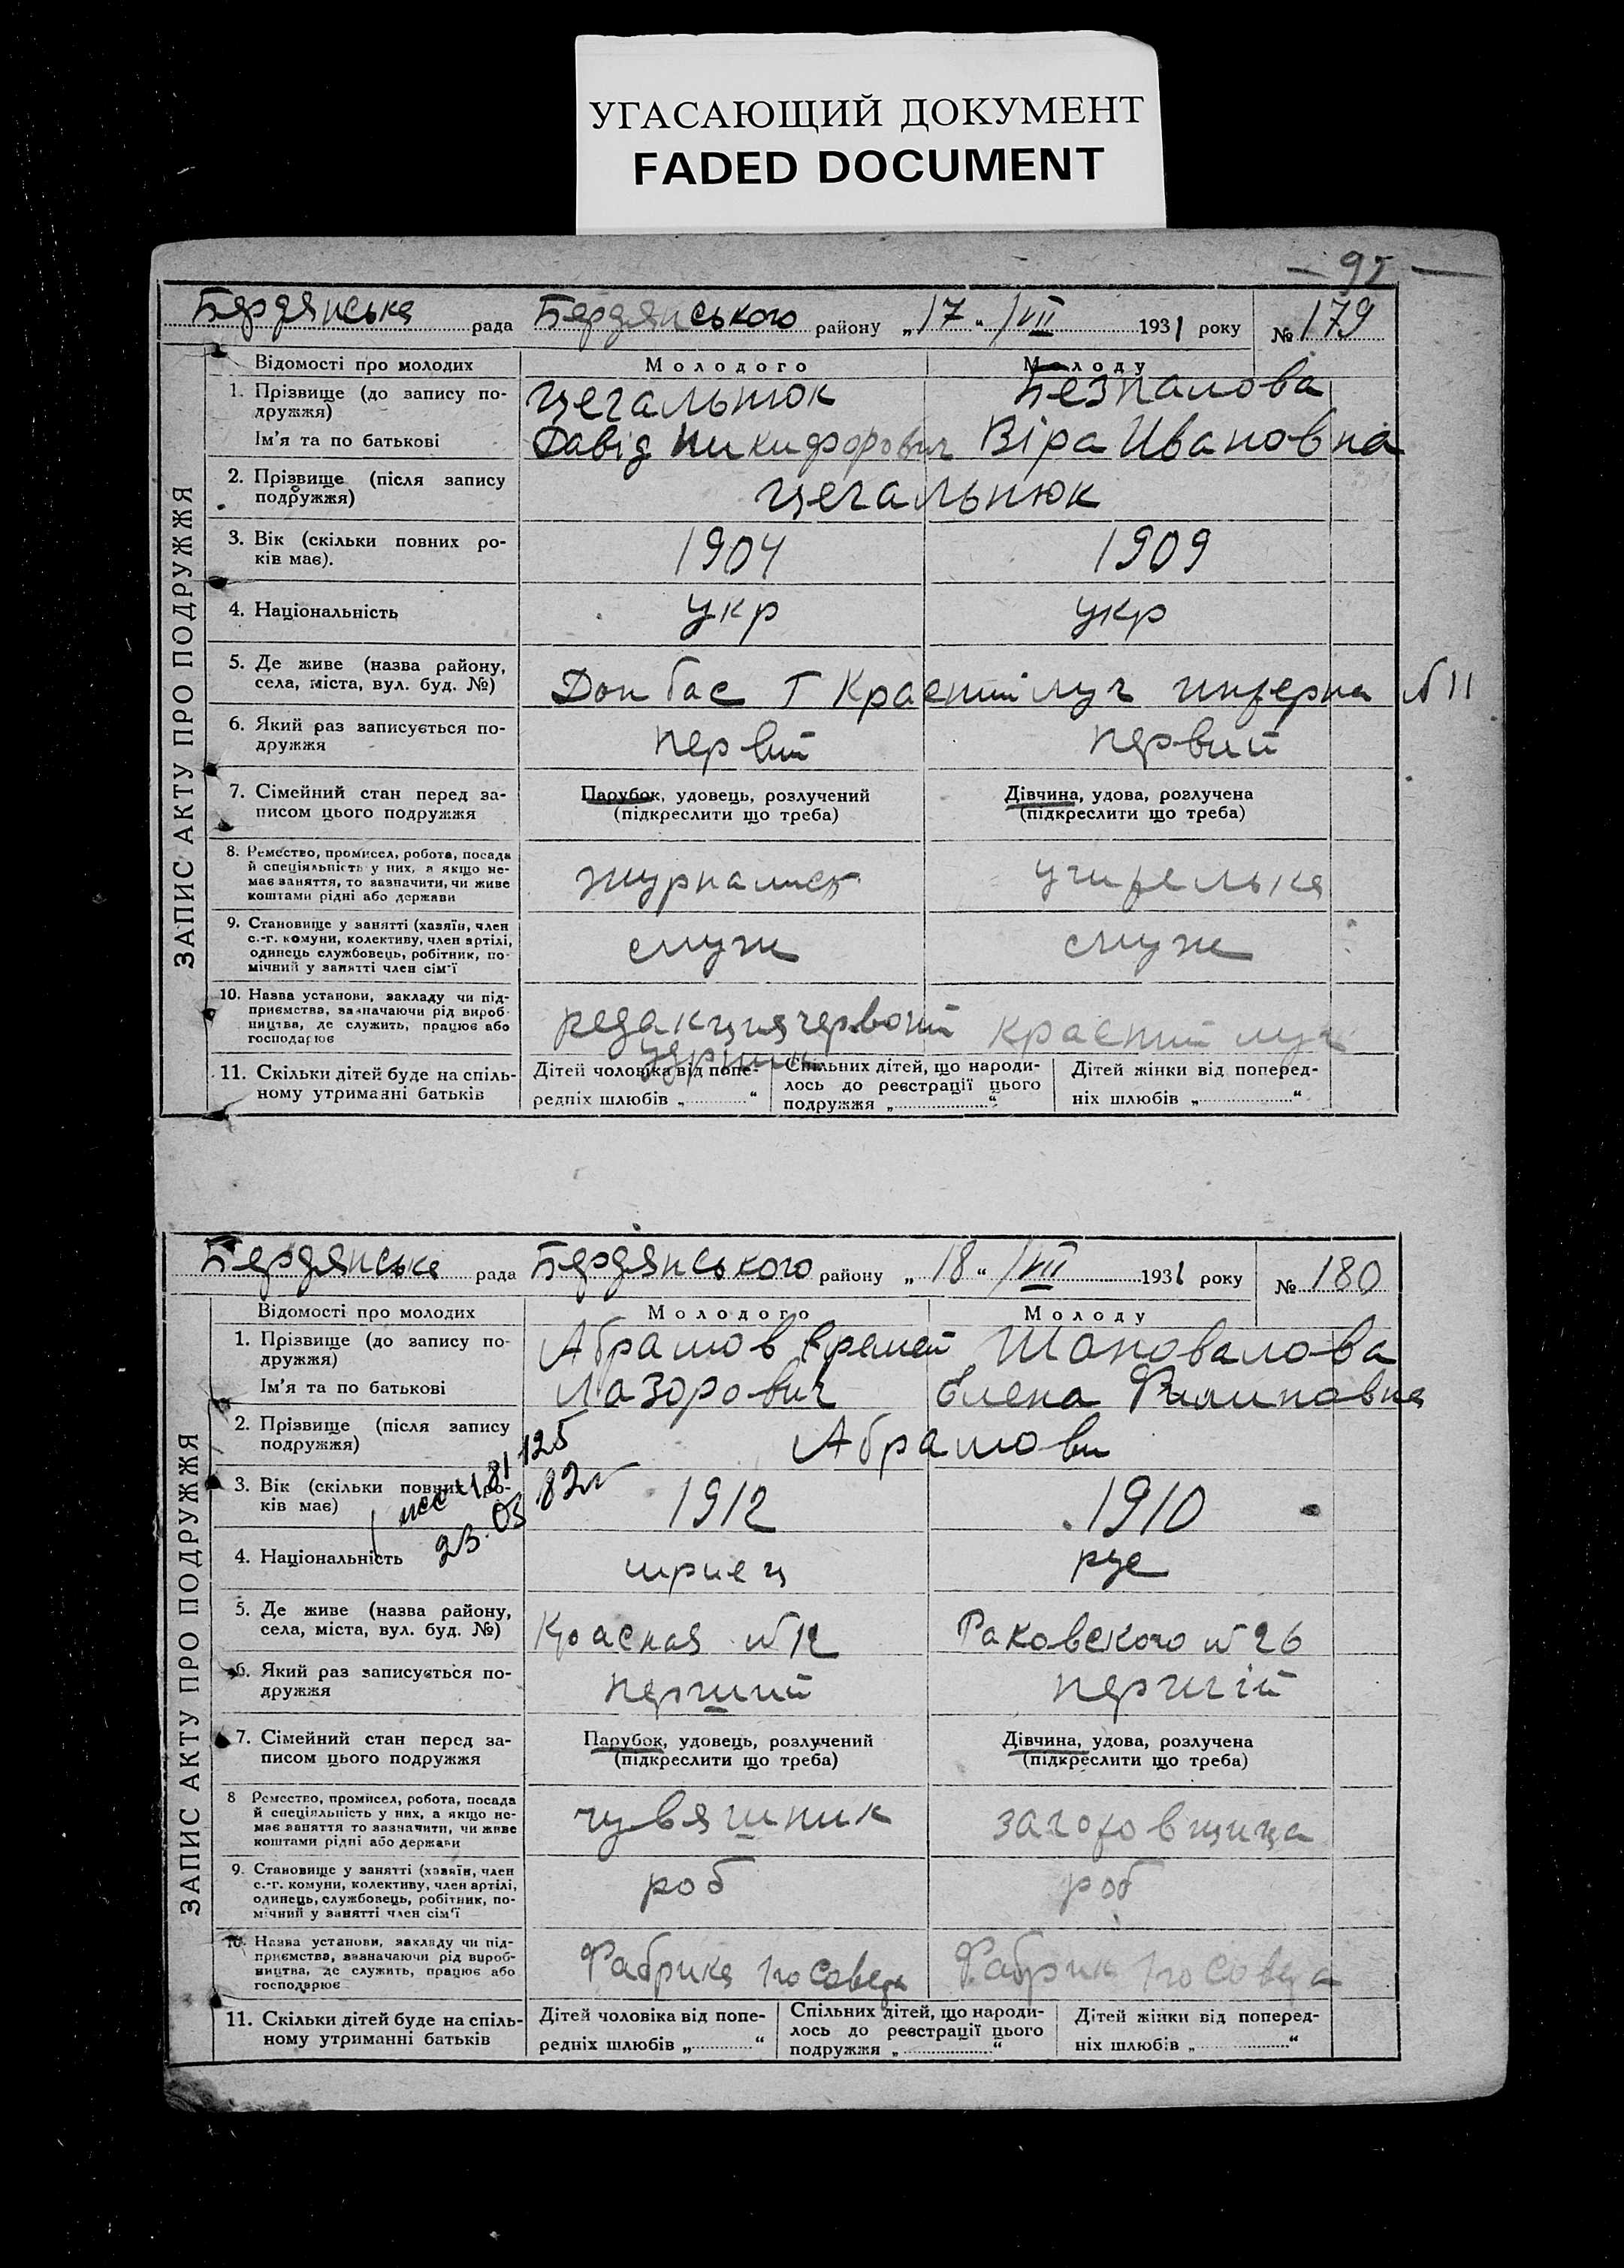 УГАСАЮЩИЙ ДОКУМЕНТ
FADED DOCUMENT
Бердянська рада Бердянського району „17“ /VII 1931 року № 179
ЗАПИС АКТУ ПРО ПОДРУЖЖЯ
Відомості про молодих Молодого Молоду
1. Прізвище (до запису по-
дружжя) Цегальнюк Безпалова
Ім'я та по батькові Давід Никифорович Віра Ивановна
2. Прізвище (після запису
подружжя) Цегальнюк
3. Вік (скільки повних ро-
ків має). 1904 1909
4. Національність укр укр
5. Де живе (назва району,
села, міста, вул. буд. №) Донбас Г Красний луч №11
6. Який раз записується по-
дружжя первий первий
7. Сімейний стан перед за-
писом цього подружжя
Парубок, удовець, розлучений
(підкреслити що треба)
Дівчина, удова, розлучена
(підкреслити що треба)
8. Ремество, промисел, робота, посада
й спеціяльність у них, а якщо не-
має заняття, то зазначити, чи живе
коштами рідні або держави
журналист учителька
9. Становище у занятті (хазяїн, член
с.-г. комуни, колективу, член артілі,
одинець службовець, робітник, по-
мічний у занятті член сім'ї
служ служ
10. Назва установи, закладу чи під-
приємства, зазначаючи рід вироб-
ництва, де служить, працює або
господарює
редакция червоний Красний луч
11. Скільки дітей буде на спіль-
ному утриманні батьків
Дітей чоловіка від попе-
редніх шлюбів „ “
Спільних дітей, що народи-
лось до реєстрації цього
подружжя „ “
Дітей жінки від поперед-
ніх шлюбів „ “
Бердянська рада Бердянського району „18“ /VII 1931 року № 180
ЗАПИС АКТУ ПРО ПОДРУЖЖЯ
Відомості про молодих Молодого Молоду
1. Прізвище (до запису по-
дружжя) Абрамов Еремей Шаповалова
Ім'я та по батькові Лазорович Елена Филиповна
2. Прізвище (після запису
подружжя) Абрамови
3. Вік (скільки повних ро-
ків має) 1912 1910
23.03 82г
4. Національність рус
5. Де живе (назва району,
села, міста, вул. буд. №) Красная №12 Раковского №26
6. Який раз записується по-
дружжя перший перший
7. Сімейний стан перед за-
писом цього подружжя
Парубок, удовець, розлучений
(підкреслити що треба)
Дівчина, удова, розлучена
(підкреслити що треба)
8 Ремество, промисел, робота, посада
й спеціяльність у них, а якщо не-
має заняття то зазначити, чи живе
коштами рідні або держави
чувяшник заготовщица
9. Становище у занятті (хазяїн, член
с.-г. комуни, колективу, член артілі,
одинець, службовець, робітник, по-
мічний у занятті член сім'ї
роб роб
10. Назва установи, закладу чи під-
приємства, зазначаючи рід вироб-
ництва, де служить, працює або
господарює
Фабрика Фабрика
11. Скільки дітей буде на спіль-
ному утриманні батьків
Дітей чоловіка від попе-
редніх шлюбів „ “
Спільних дітей, що народи-
лось до реєстрації цього
подружжя „ “
Дітей жінки від поперед-
ніх шлюбів „ “